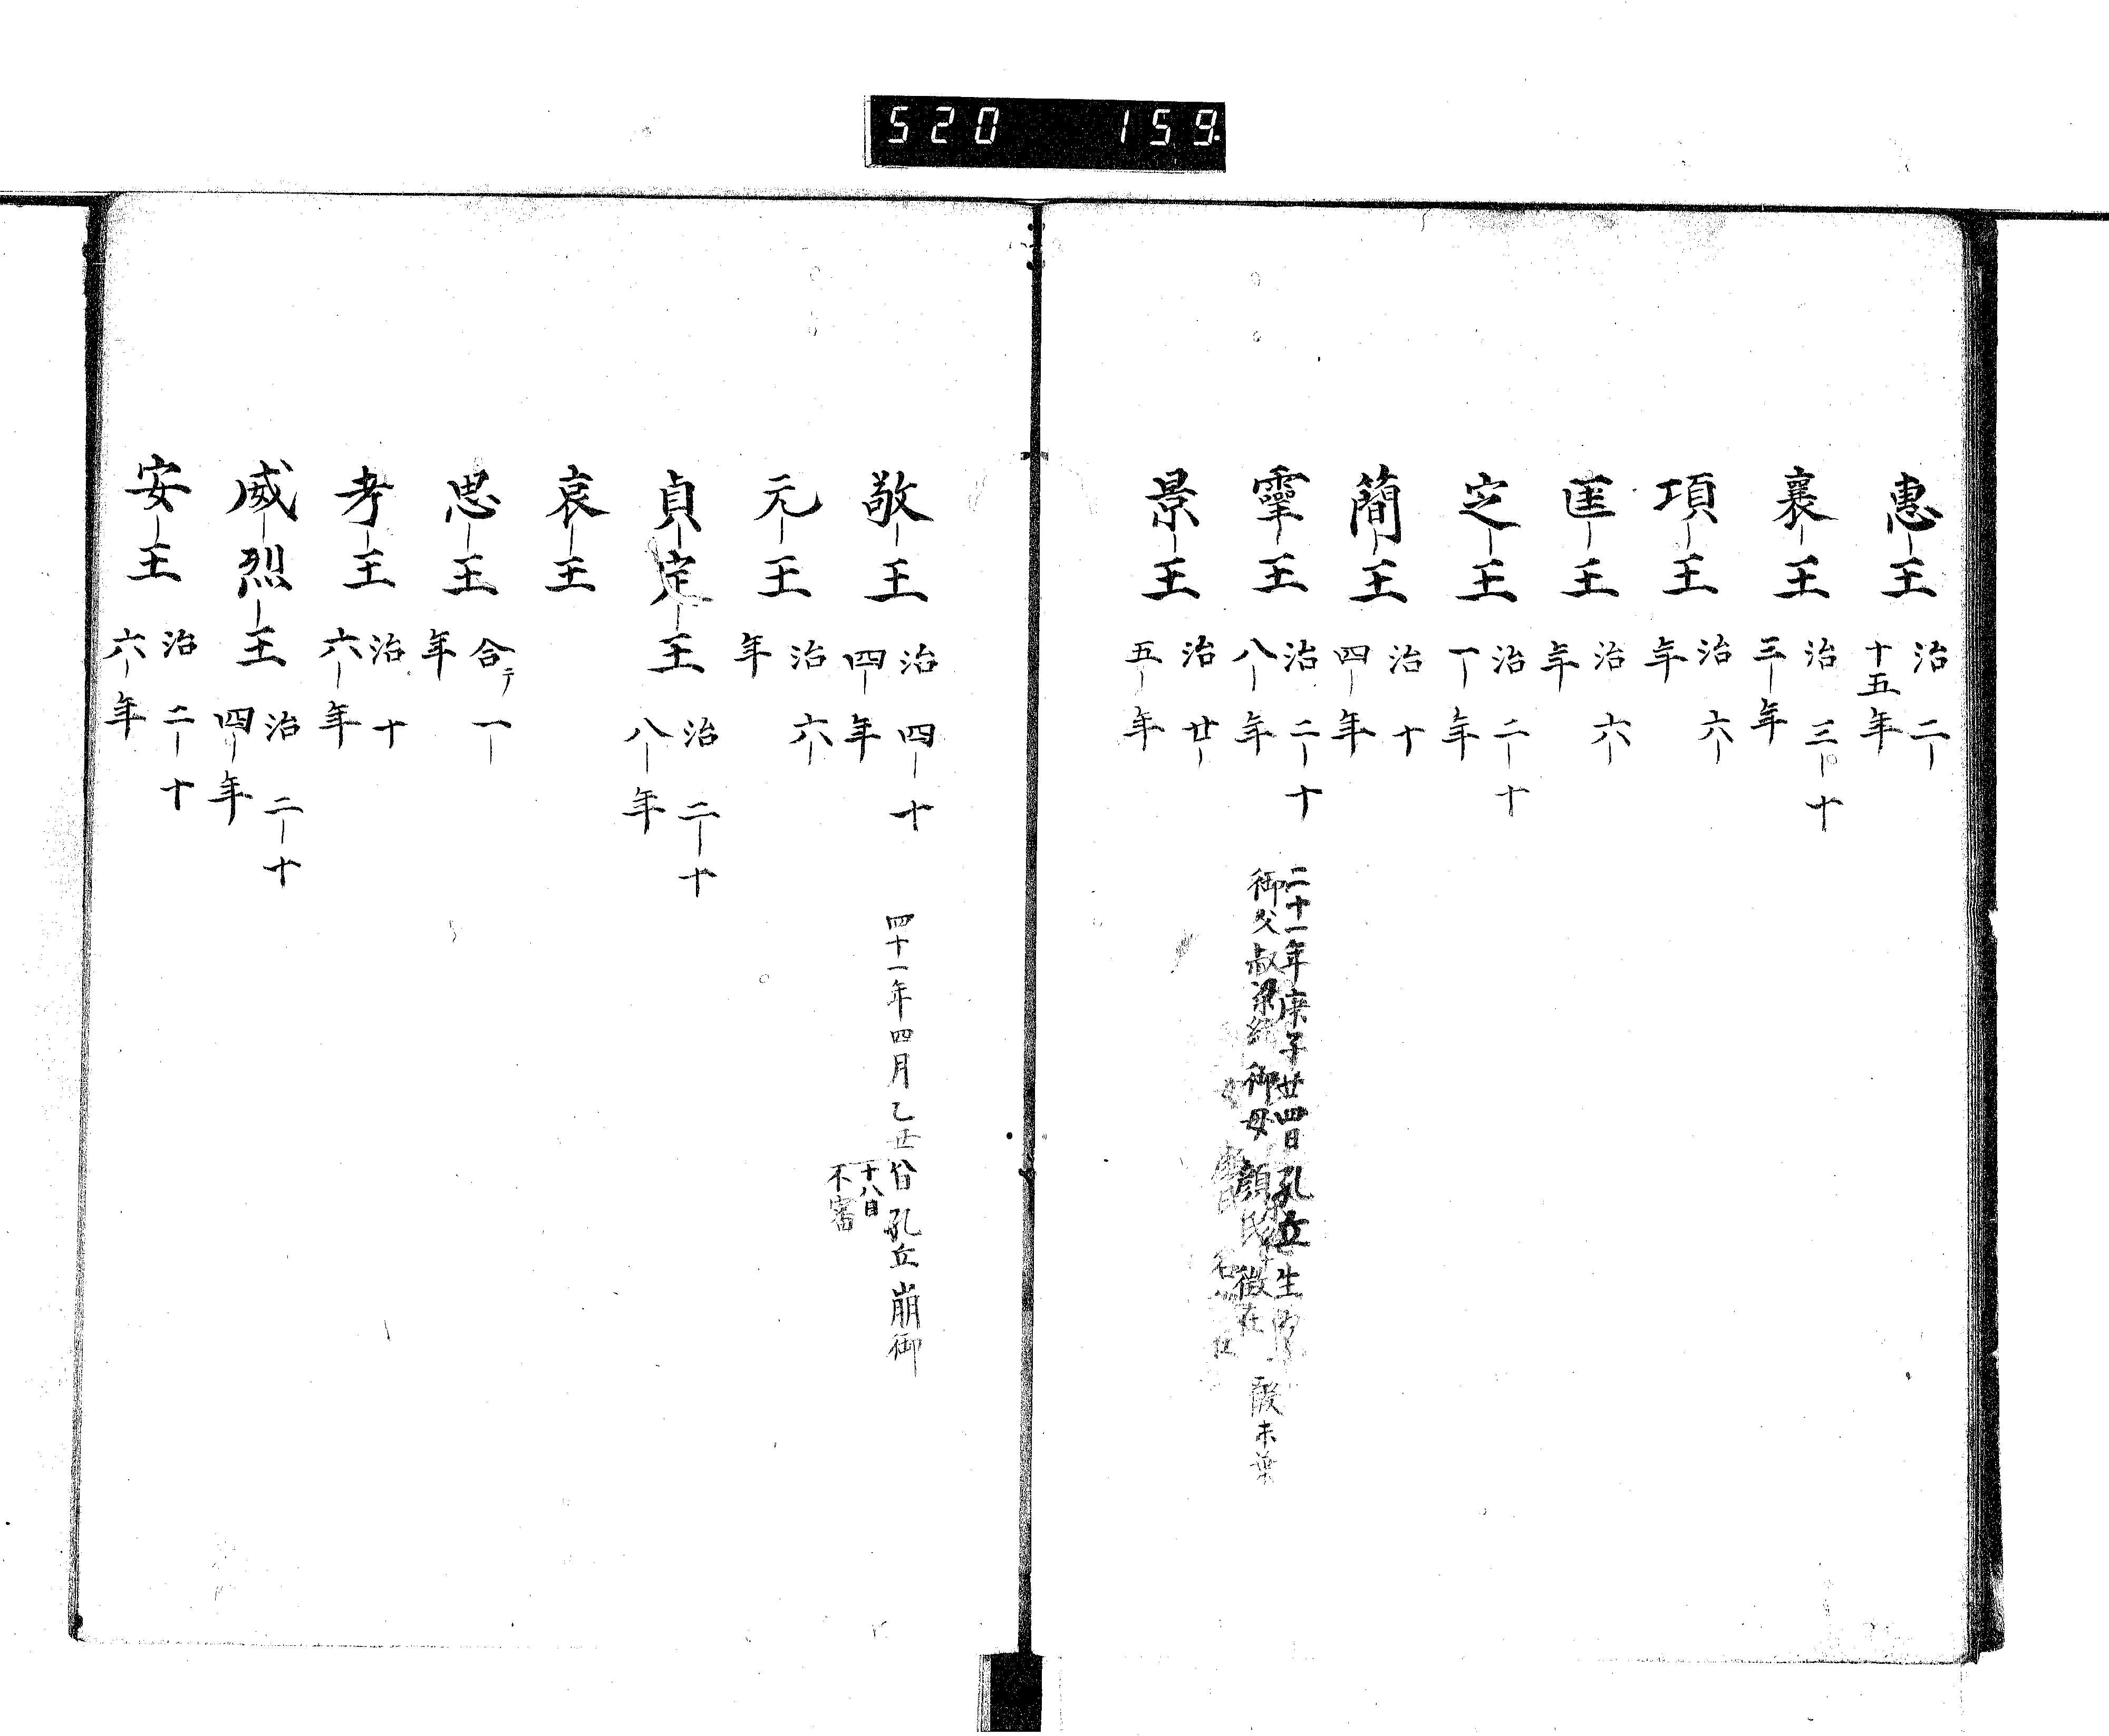 520 159
惠王 治二十五年
襄王 治三十三年
項王 治六年
匡王 治六年
定王 治二十一年
簡王 治十四年
靈王 治二十八年
二十一年庚子廿四日孔丘生
御父叔梁紇 御母顔氏徴在 殷末葉
景王 治廿五年
敬王 治四十四年
四十一年四月乙丑 日孔丘崩御
十八日
不審
元王 治六年
貞定王 治二十八年
哀王
思王 合テ一年
考王 治十六年
威烈王 治二十四年
安王 治二十六年